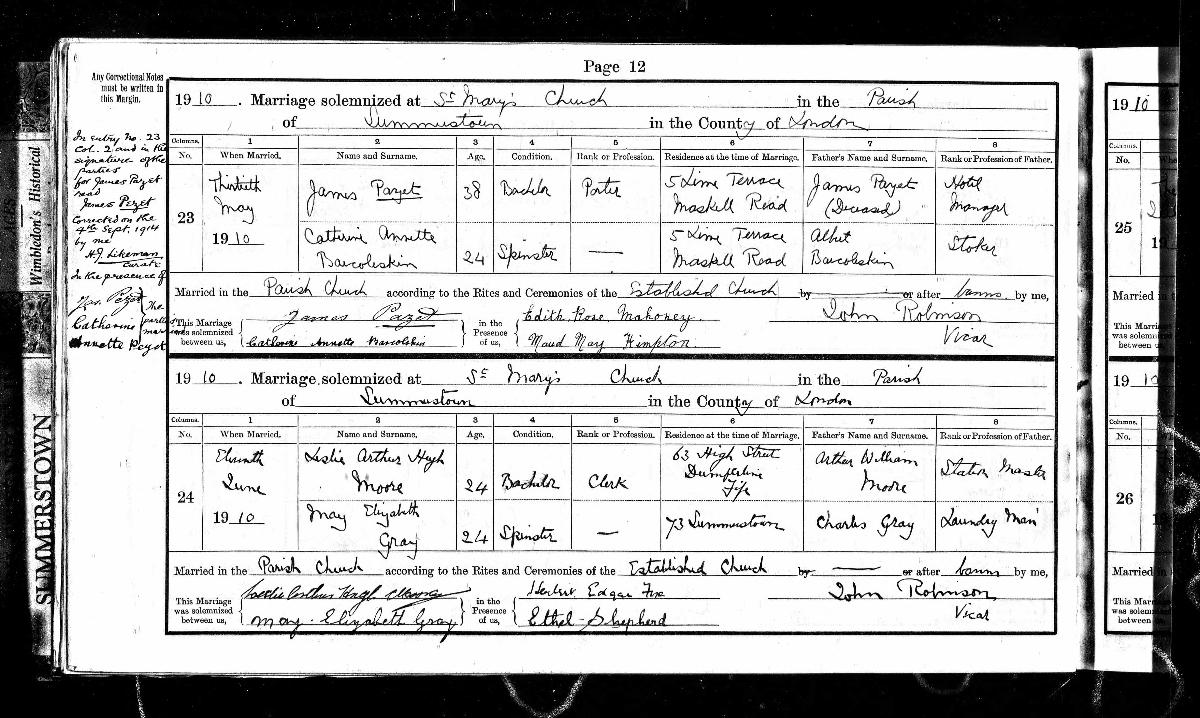 Page 12
Any Correctional Notes
must be written in
this Margin.
In entry No. 23
Col. 2 and in the
signature of the
parties
for James Pazet
read
James Pezet
Corrected on the
4th Sept. 1914
by me
H.J. Likeman
Curate
In the presence of
Jas. Pezet
Catharine
Annette Pezet
The
parties
married
1910. Marriage solemnized at St Mary's Church in the Parish
of Summerstown in the County of London
Columns. 1 2 3 4 5 6 7 8
No. When Married. Name and Surname. Age. Condition. Rank or Profession. Residence at the time of Marriage. Father's Name and Surname. Rank or Profession of Father.
23
Thirtieth May 1910
James Pazet 38 Bachelor Porter 5 Lime Terrace Maskell Road James Pazet (Deceased) Hotel Manager
Catherine Annette Barcoleskin 24 Spinster — 5 Lime Terrace Maskell Road Albert Barcoleskin Stoker
Married in the Parish Church according to the Rites and Ceremonies of the Established Church by — or after banns by me,
This Marriage was solemnized between us, James Pazet
Catherine Annette Barcoleskin
in the Presence of us, Edith Rose Mahoney.
Maud May Kimpton.
John Robinson
Vicar
1910. Marriage solemnized at St Mary's Church in the Parish
of Summerstown in the County of London
Columns. 1 2 3 4 5 6 7 8
No. When Married. Name and Surname. Age. Condition. Rank or Profession. Residence at the time of Marriage. Father's Name and Surname. Rank or Profession of Father.
24
Eleventh June 1910
Leslie Arthur Hugh Moore 24 Bachelor Clerk 63 High Street Dumferline Fife Arthur William Moore Station Master
May Elizabeth Gray 24 Spinster — 73 Summerstown Charles Gray Laundry Man
Married in the Parish Church according to the Rites and Ceremonies of the Established Church by — or after banns by me,
This Marriage was solemnized between us, Leslie Arthur Hugh Moore
May Elizabeth Gray
in the Presence of us, Herbert Edgar Fox
Ethel Shepherd
John Robinson
Vicar
Wimbledon's Historical
SUMMERSTOWN
1910
Columns.
No.
25
Married
This Marri
was solem
between u
1910
Columns.
No.
26
Married
This Mar
was solem
between